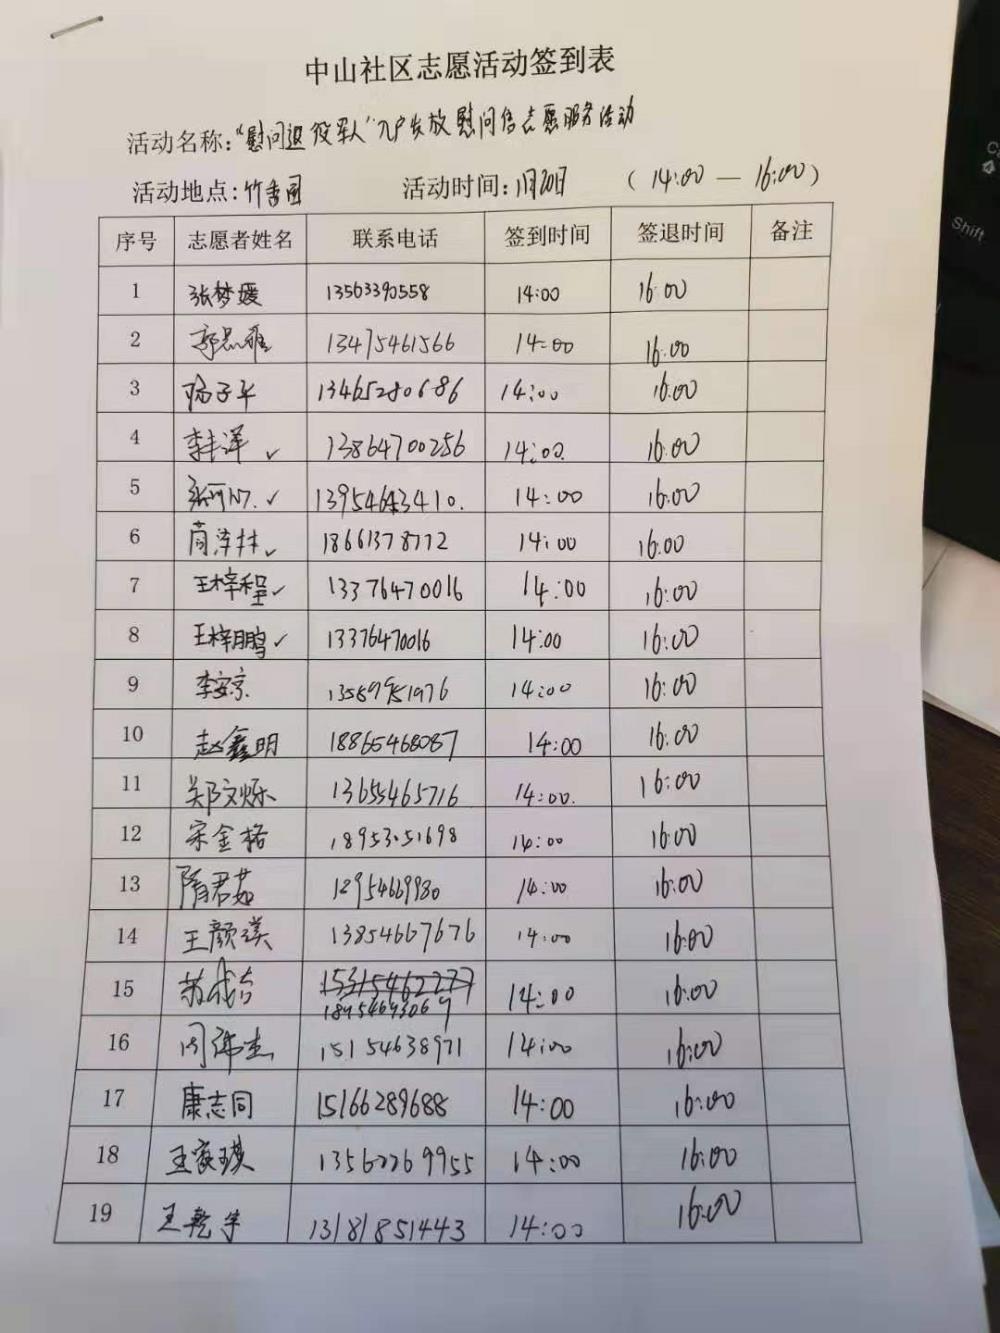 中山社区志愿活动签到表
活动名称："慰问退役军人"入户发放慰问信志愿服务活动
活动地点：竹香园 活动时间：1月20日 （14:00 — 16:00）
序号 志愿者姓名 联系电话 签到时间 签退时间 备注
1 张梦媛 13563390558 14:00 16:00
2 郭思雅 13475461566 14:00 16:00
3 杨子平 13465280686 14:00 16:00
4 李丰洋 ✓ 13864700256 14:00. 16:00
5 ✓ 13954643410. 14:00 16:00
6 ✓ 18661378772 14:00 16:00
7 王梓程 ✓ 13376470016 14:00 16:00
8 王梓鹏 ✓ 13376470016 14:00 16:00
9 李安京 13589951976 14:00 16:00
10 赵鑫明 18865468087 14:00 16:00
11 郑文烁 13655465716 14:00. 16:00
12 宋金格 18953051698 14:00 16:00
13 隋君茹 12954669980 14:00 16:00
14 王颜淇 13854667676 14:00 16:00
15 苏成吉 14:00 16:00
18954693069
16 周沛杰 15154638971 14:00 16:00
17 康志同 15166289688 14:00 16:00
18 王家琪 13562269955 14:00 16:00
19 王乾宇 13181851443 14:00 16:00
Shift